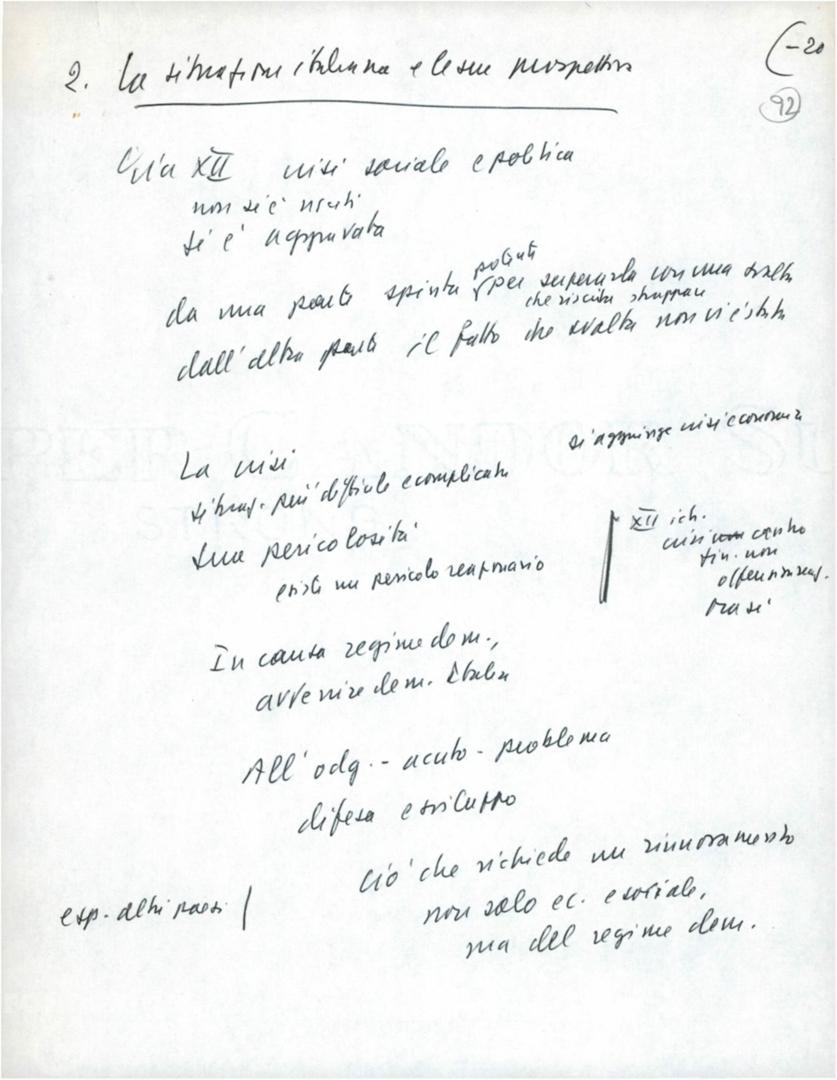 (-20
92
2. La situazione italiana e le sue prospettive
Già XII crisi sociale e politica
non si è usciti
si è aggravata
potente
da una parte spinta per superarla con una svolta
che riscuta strappare
dall'altra parte il fatto che svolta non vi è stata
si aggiunge crisi economica
La crisi
situaz. più difficile e complicata
Sua pericolosità
esiste un pericolo reazionario
XII ich.
crisi centro
sin. non
offensiva reaz.
ora sì
In causa regime dem.,
avvenire dem. Italia
All'odg. - acuto - problema
difesa e sviluppo
Ciò che richiede un rinnovamento
non solo ec. e sociale,
ma del regime dem.
esp. altri paesi